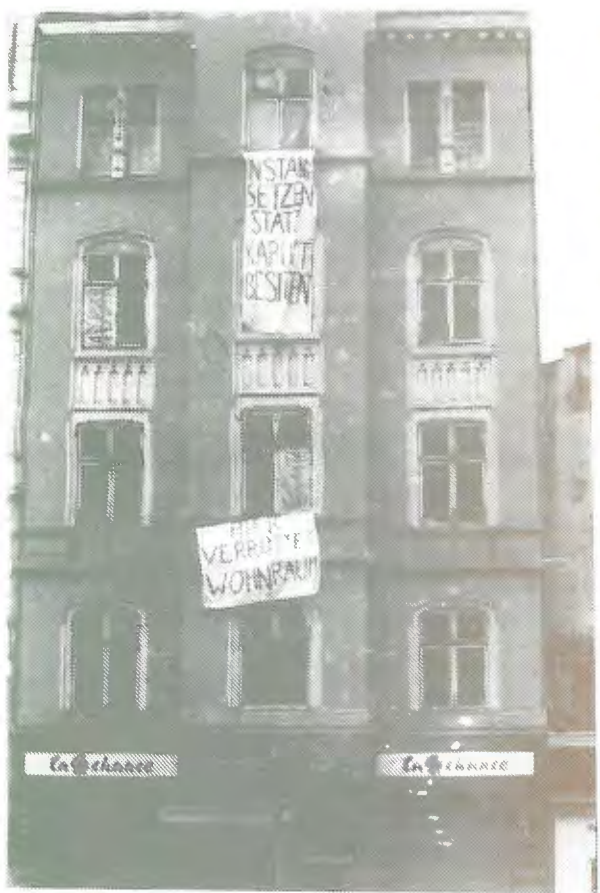 INSTAND
SETZEN
STATT
KAPUTT
BESITZEN
HIER
WOHNRAUM
chance
chance